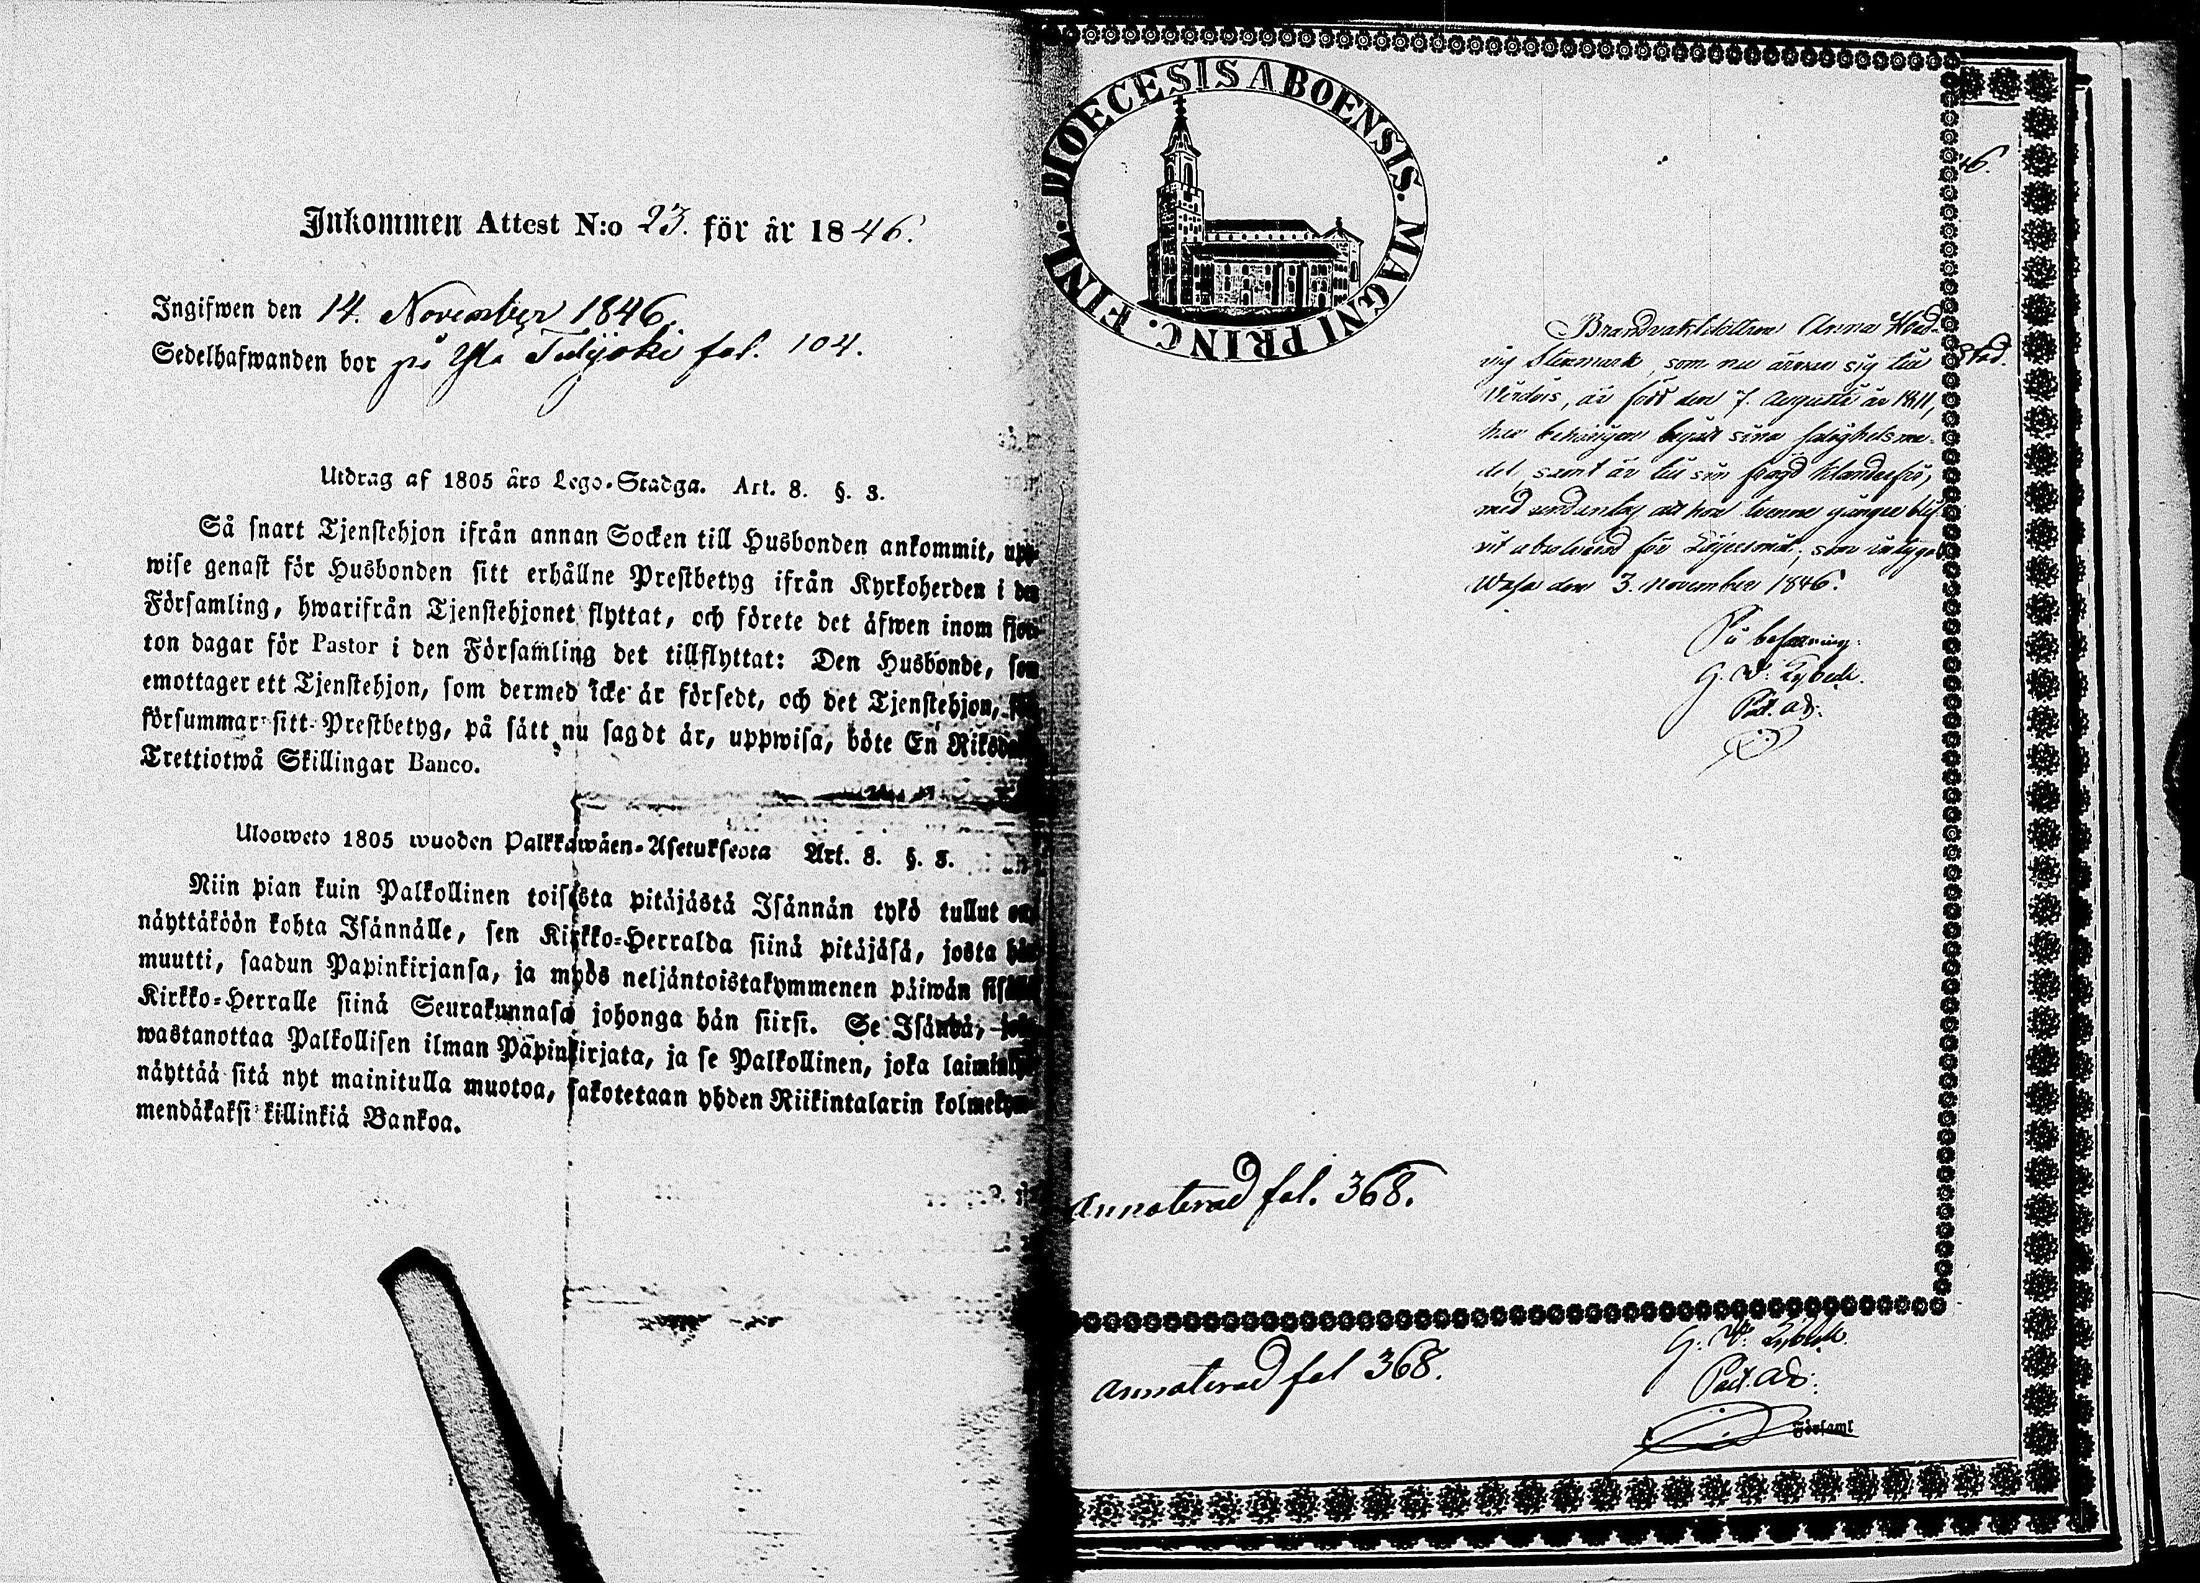 Inkommen Attest N:o 23. för år 1846.
Ingifwen den 14. November 1846.
Sedelhafwanden bor på Yla Tulijoki fol. 104.
Utdrag af 1805 års Lego-Stadga. Art. 8. §. 3.
Så snart Tjenstehjon ifrån annan Socken till Husbonden ankommit, upp-
wise genast för Husbonden sitt erhållne Prestbetyg ifrån Kyrkoherden i den
Församling, hwarifrån Tjenstehjonet flyttat, och förete det äfwen inom fjor-
ton dagar för Pastor i den Församling det tillflyttat: Den Husbonde, som
emottager ett Tjenstehjon, som dermed icke är försedt, och det Tjenstehjon,
försummar sitt Prestbetyg, på sätt nu sagdt är, uppwisa, böte En Riksdal
Trettiotwå Skillingar Banco.
Ulosweto 1805 wuoden Palkkawäen-Asetuksesta Art. 8. §. 3.
Niin pian kuin Palkollinen toisesta pitäjästä Isännän tykö tullut on
näyttäköön kohta Isännälle, sen Kirkko-Herralda siinä pitäjäsä, josta hän
muutti, saadun Papinkirjansa, ja myös neljäntoistakymmenen päiwän sisällä
Kirkko-Herralle siinä Seurakunnasa johonga hän siirsi. Se Isändä, joka
wastanottaa Palkollisen ilman Papinkirjata, ja se Palkollinen, joka laiminlyö
näyttää sitä nyt mainitulla muotoa, sakotetaan yhden Riikintalarin kolmekym-
mendäkaksi killinkiä Bankoa.
DIOECESIS ABOENSIS. MAGNI PRINC. FINL.
46.
Brandvaktsdottren Anna Hed-
vig Stenmark, som nu ärnar sig till
Wirdois, är född den 7. Augusti år 1811,
har behörigen begått sina salighetsme-
del, samt är till sin frejd klanderfri,
med undantag att hon tvenne gånger blif-
vit absolverad för Lägersmål; som intygas
Wasa den 3. November 1846.
Stad.
På befallning:
G. W. Lybeck.
Past. adj.
Annoterad fol. 368.
G. W. Lybeck.
Past. adj.
Annoterad fol 368.
Församl